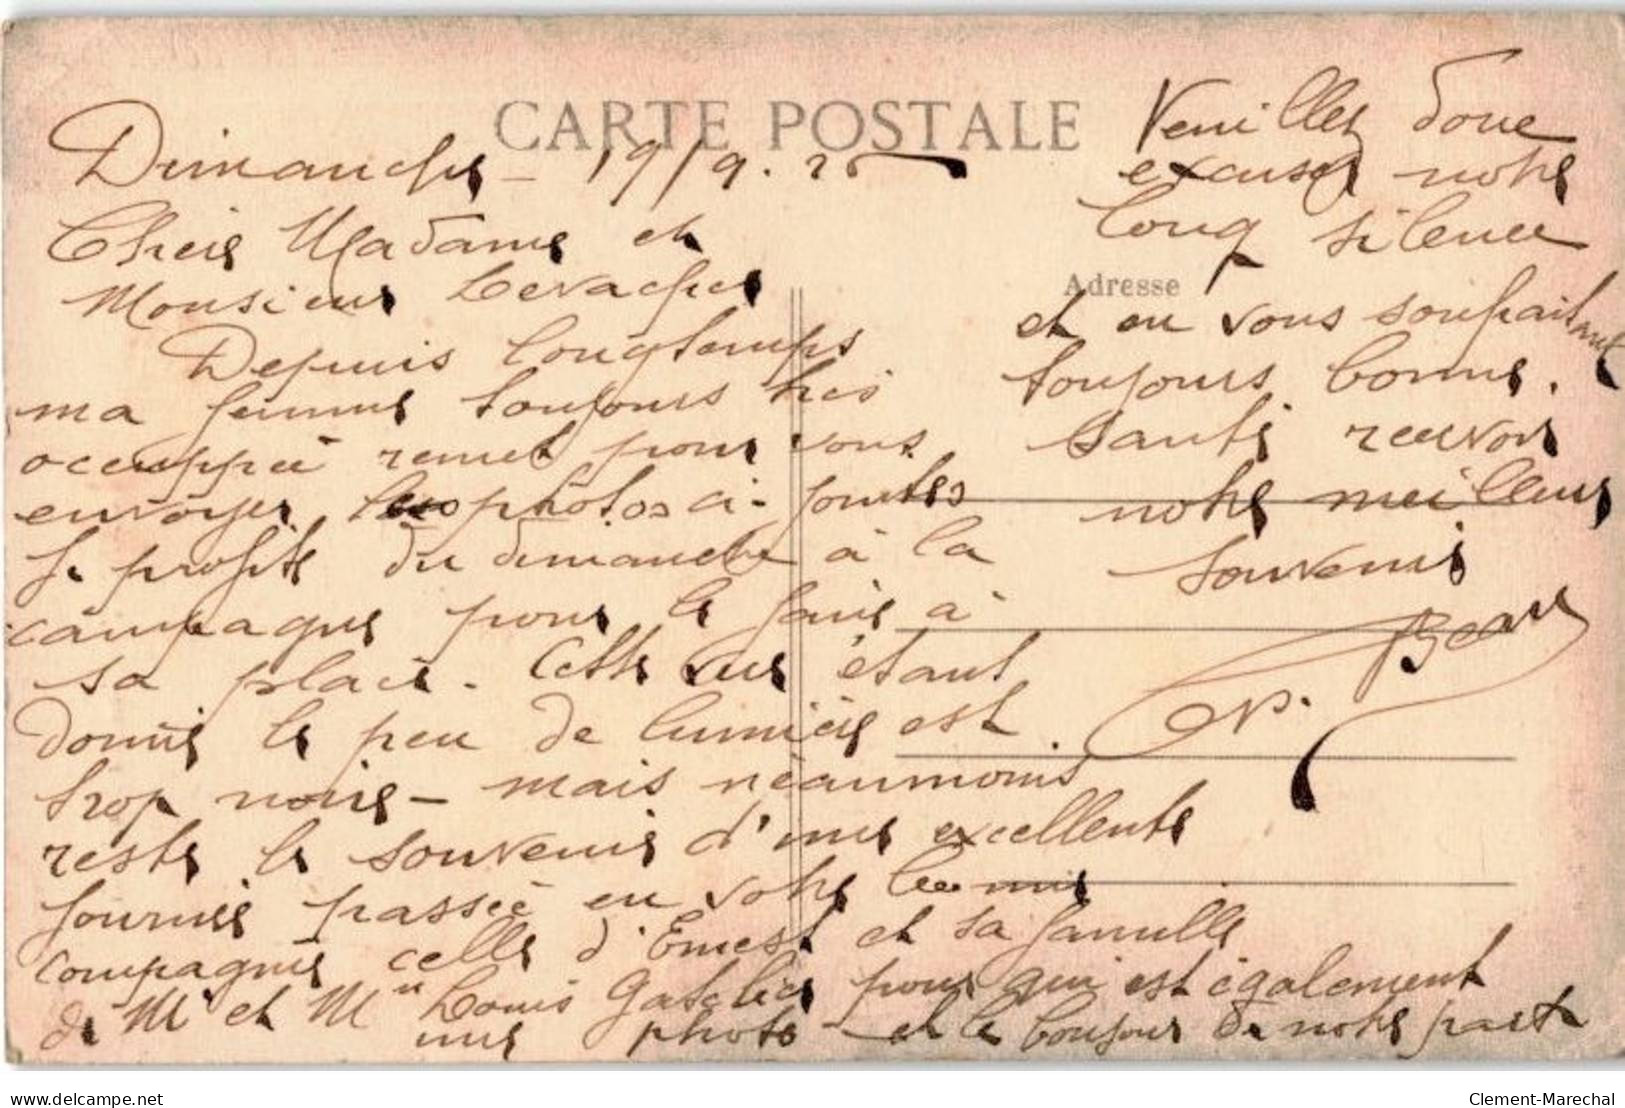 CARTE POSTALE
Dimanche - 19/9.25
Chère Madame et
Monsieur Levacher
Depuis longtemps
ma femme toujours très
occuppée remet pour vous
envoyer les photos ci-jointes
Je profite du dimanche à la
campagne pour le faire à
sa place. Cette vue étant
donnée le peu de lumière est
trop noire - mais néaumoins
reste le souvenir d'une excellente
journée passée en votre
compagnie celle d'Ernest et sa famille
de Mr et Mme Louis pour qui est également
une photo - et le bonjour de notre part
Veuillez donc
excuser notre
long silence
Adresse
et en vous souhaitant
toujours bonne.
santé recevoir
notre meilleur
souvenir
www.delcampe.net
Clement-Marechal